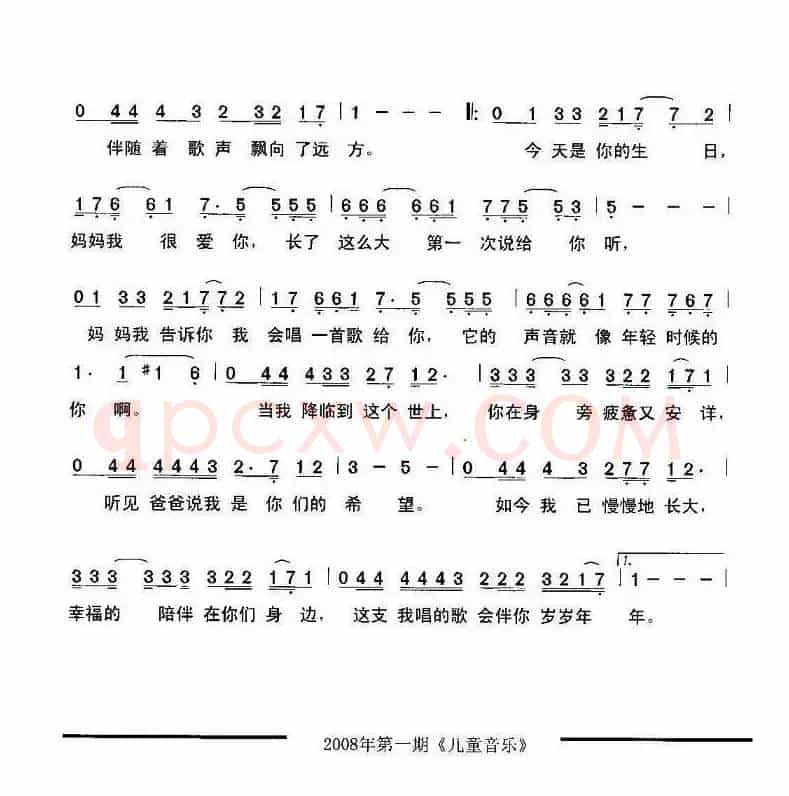 0 44 4 3 2 32 17 | 1 - - - ‖: 0 1 33 217 7 2 |
伴随着 歌声 飘向了远 方。 今 天是你的生 日,
176 61 7· 5 555 | 666 661 775 53 | 5 - - - |
妈妈我 很 爱 你, 长了 这么大 第一 次说给 你 听,
01 33 21772 | 17 661 7· 5 555 | 66661 77 767 |
妈 妈我 告诉你 我 会唱 一首歌 给 你, 它的 声音就 像 年轻 时候的
1· 1 #1 6 | 0 44 433 27 12· | 333 33 322 171 |
你 啊。 当我 降临到 这个 世上, 你在身 旁 疲惫又 安 详,
qpcxw.COM
0 44 4443 2·7 12 | 3 - 5 - | 0 44 4 3 277 12· |
听见 爸爸说我 是 你 们的 希 望。 如今 我 已 慢慢地 长大,
333 333 322 171 | 044 4443 222 3217 | 1. 1 - - - |
幸福的 陪伴 在你们 身 边, 这支 我唱的歌 会伴你 岁岁年 年。
2008年第一期《儿童音乐》